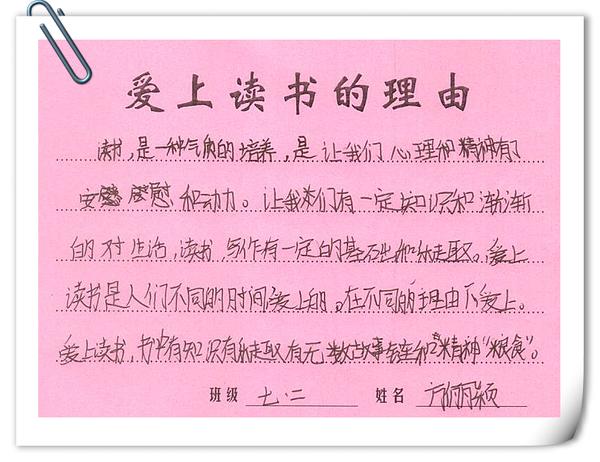 爱上读书的理由
读书,是一种气质的培养,是让我们心理和精神有了
安慰和动力。让我们有一定知识和渐渐
的对生活,读书写作有一定的基础和乐趣。爱上
读书是人们不同的时间爱上的。在不同的理由下爱上。
爱上读书,书中有知识有乐趣有无数故事和精神“粮食”。
班级 七.二 姓名 丽颖